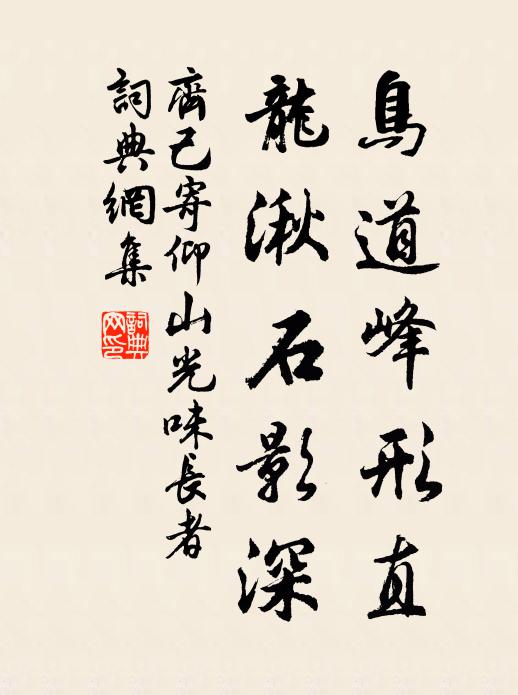 鳥道峰形直
龍湫石影深
齊己寄仰山光味長者
詞典網集
詞典
网印